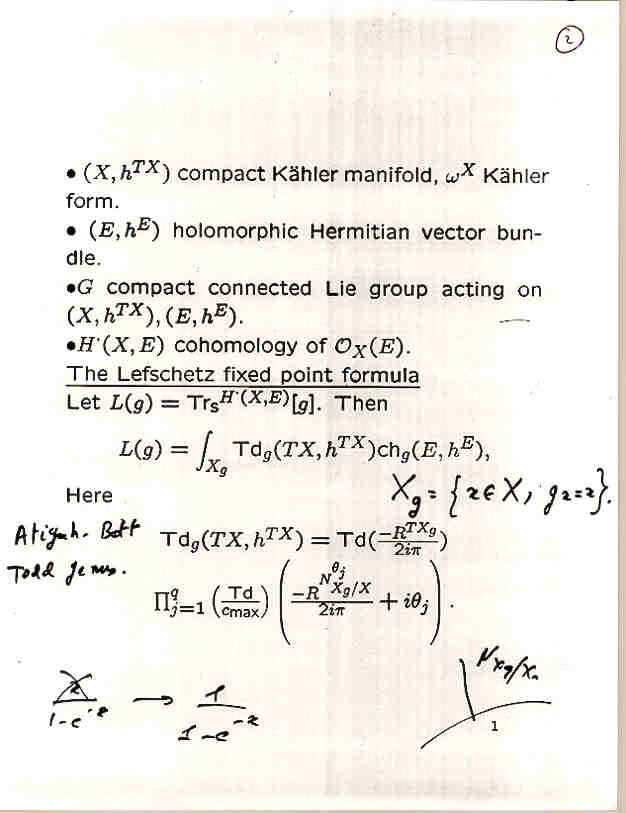 2
• (X, h^{TX}) compact Kähler manifold, ω^X Kähler
form.
• (E, h^E) holomorphic Hermitian vector bun-
dle.
•G compact connected Lie group acting on
(X, h^{TX}), (E, h^E).
•H^·(X, E) cohomology of O_X(E).
The Lefschetz fixed point formula
Let L(g) = Tr_s^{H^·(X,E)}[g]. Then
L(g) = ∫_{X_g} Td_g(TX, h^{TX})ch_g(E, h^E),
Here
X_g = {x ∈ X, gx=x}.
Atiyah. Bott
Todd genus.
Td_g(TX, h^{TX}) = Td(\frac{-R^{TX_g}}{2iπ})
Π_{j=1}^q (\frac{Td}{c_{max}}) (\frac{-R^{N^{θ_j}_{X_g/X}}}{2iπ} + iθ_j).
\frac{x}{1-e^{-x}} → \frac{1}{1-e^{-x}}
N_{X_g/X}
1